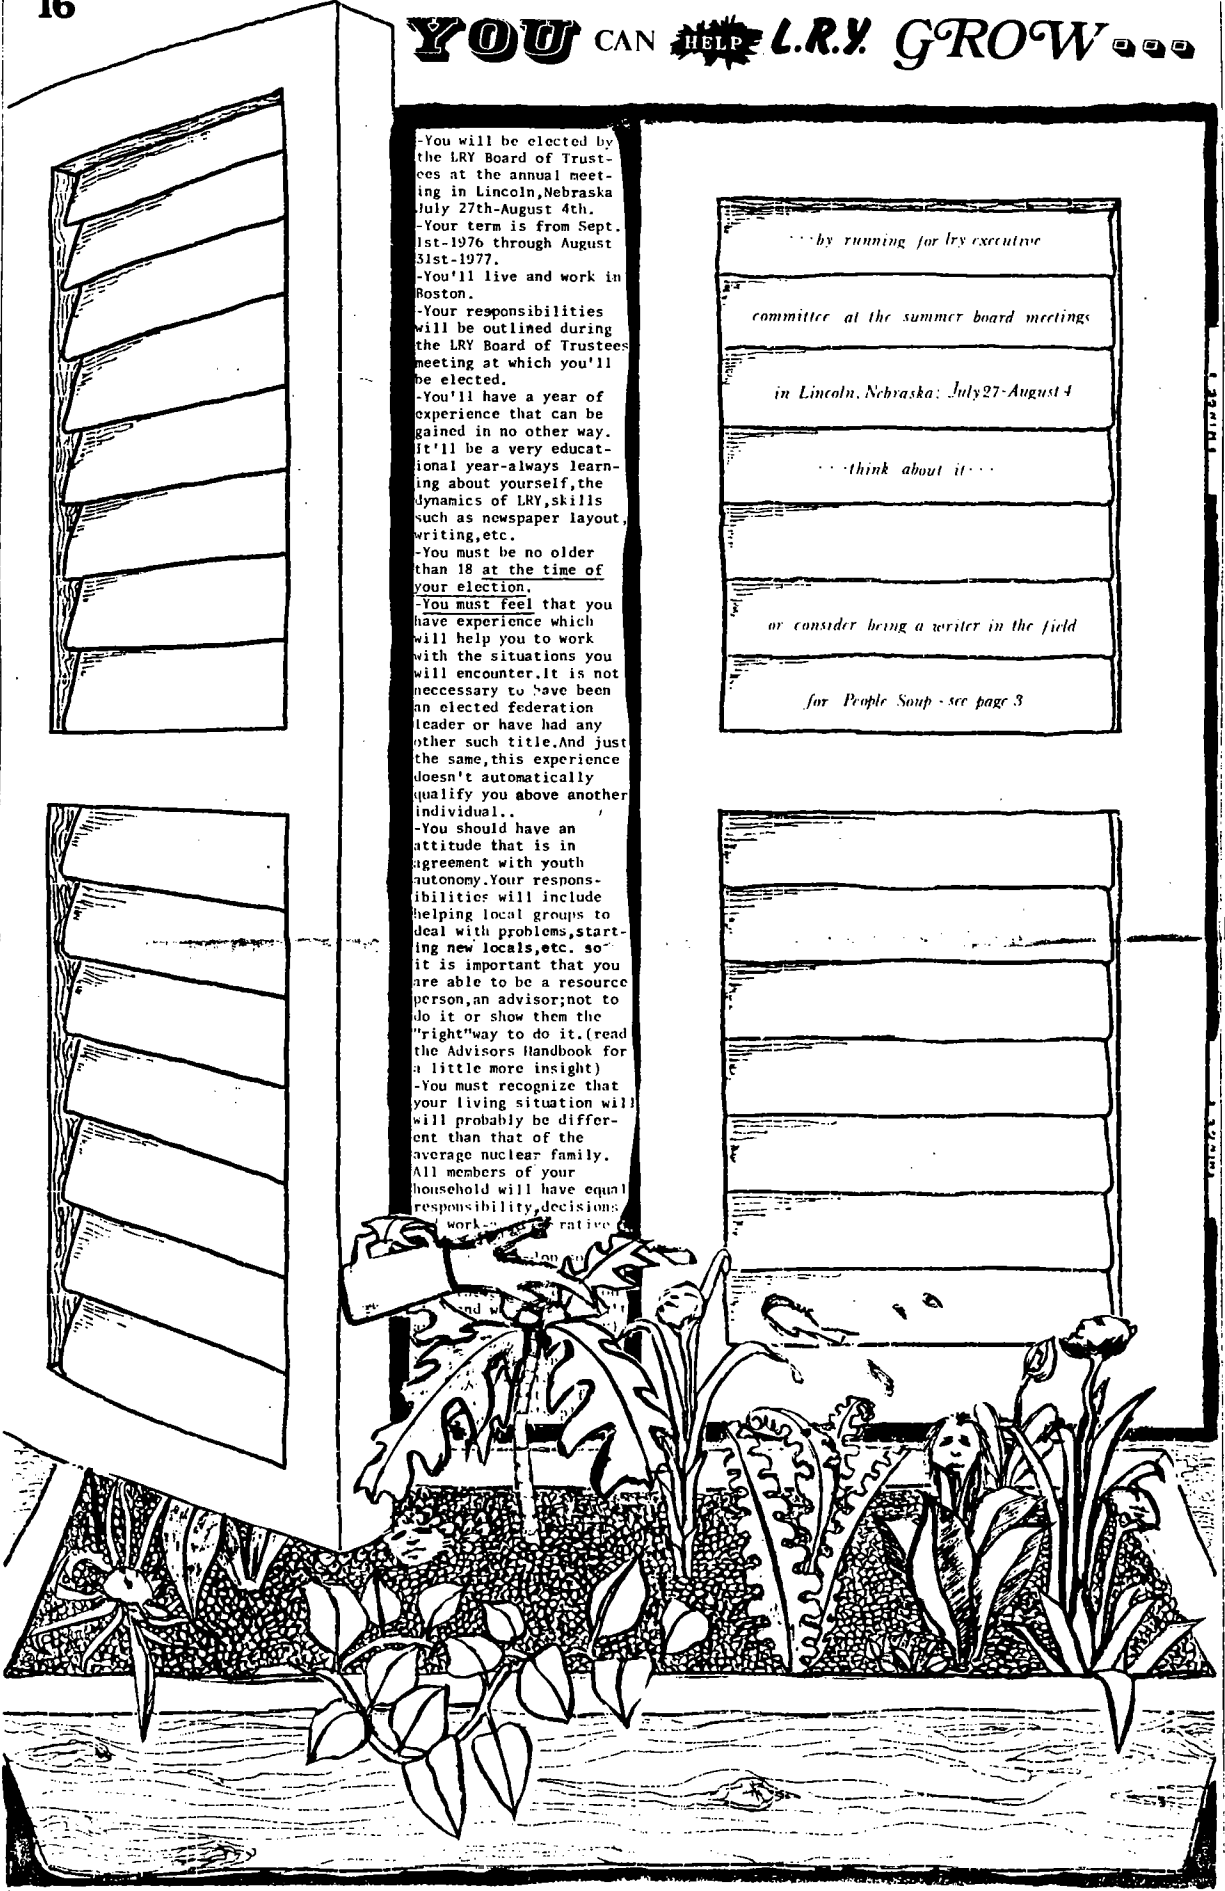 16
YOU CAN HELP L.R.Y. GROW...
-You will be elected by
the LRY Board of Trust-
ees at the annual meet-
ing in Lincoln,Nebraska
July 27th-August 4th.
-Your term is from Sept.
1st-1976 through August
31st-1977.
-You'll live and work in
Boston.
-Your responsibilities
will be outlined during
the LRY Board of Trustees
meeting at which you'll
be elected.
-You'll have a year of
experience that can be
gained in no other way.
It'll be a very educat-
ional year-always learn-
ing about yourself,the
dynamics of LRY,skills
such as newspaper layout,
writing,etc.
-You must be no older
than 18 at the time of
your election.
-You must feel that you
have experience which
will help you to work
with the situations you
will encounter.It is not
neccessary to have been
an elected federation
leader or have had any
other such title.And just
the same,this experience
doesn't automatically
qualify you above another
individual..
-You should have an
attitude that is in
agreement with youth
autonomy.Your respons-
ibilities will include
helping local groups to
deal with problems,start-
ing new locals,etc. so
it is important that you
are able to be a resource
person,an advisor;not to
do it or show them the
"right"way to do it.(read
the Advisors Handbook for
a little more insight)
-You must recognize that
your living situation will
will probably be differ-
ent than that of the
average nuclear family.
All members of your
household will have equal
responsibility,decisions
work- rative
...by running for lry executive
committee at the summer board meetings
in Lincoln, Nebraska; July 27-August 4
...think about it...
or consider being a writer in the field
for People Soup - see page 3